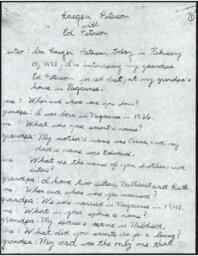 Kaegen Peterson
with
Ed Peterson
intro: I'm Kaegen Peterson, today is February
19, 1998, I'm interviewing my grandpa
Ed Peterson. at my grandpa's
house in Negaunee.
me: When and where were you born?
grandpa: I was born in Negaunee in 1926.
me: What are your parent's names?
grandpa: My mother's name was and my
dad's name was Edward.
me: What are the names of you brothers and
sisters?
grandpa: I have two sisters, and Ruth.
me: When and where were you married?
grandpa: We were married in Negaunee in 1948.
me: What is your spouse's name?
grandpa: My spouse's name is Mildred.
me: What did your parents do for a living?
grandpa: My dad was the only one that